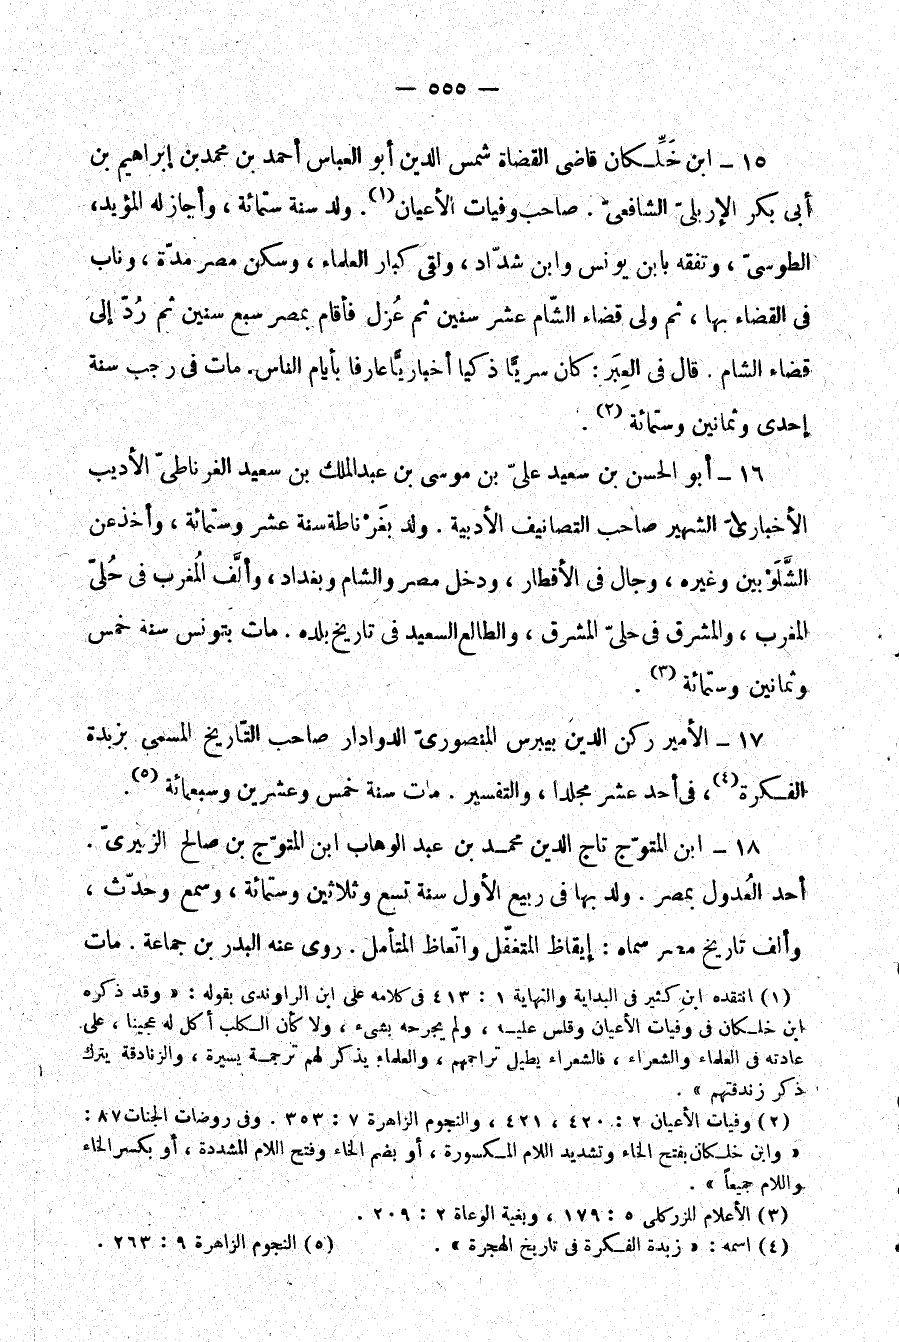 — ٥٥٥ —
١٥ ــ ابن خَلِّـكان قاضى القضاة شمس الدين أبو العباس أحمد بن محمد بن إبراهيم بن
أبى بكر الإربلىّ الشافعىّ . صاحب وفيات الأعيان(١). ولد سنة ستمائة ، وأجاز له المؤيد،
الطوسىّ ، وتفقه بابن يونس وابن شدّاد ، ولقى كبار العلماء ، وسكن مصر مدّة ، وناب
فى القضاء بها ، ثم ولى قضاء الشّام عشر سنين ثم عُزل فأقام بمصر سبع سنين ثم رُدّ إلى
قضاء الشام . قال فى العِبَر : كان سريًّا ذكيا أخباريًّا عارفا بأيام الناس. مات فى رجب سنة
إحدى وثمانين وستمائة (٢) .
١٦ ــ أبو الحسن بن سعيد علىّ بن موسى بن عبدالملك بن سعيد الغرناطىّ الأديب
الأخبارىّ الشهير صاحب التصانيف الأدبية . ولد بغَرْناطة سنة عشر وستمائة ، وأخذ عن
الشَّلَوْبين وغيره ، وجال فى الأقطار ، ودخل مصر والشام وبغداد، وألَّف المُغرب فى حُلىّ
المغرب ، والمشرق فى حلىّ المشرق ، والطالع السعيد فى تاريخ بلده . مات بتونس سنة خمس
وثمانين وستمائة (٣) .
١٧ ــ الأمير ركن الدين بيبرس المنصورىّ الدوادار صاحب التّاريخ المسمى بزبدة
الفـكرة(٤)، فى أحد عشر مجلدا ، والتفسير . مات سنة خمس وعشرين وسبعمائة (٥).
١٨ ــ ابن المتوّج تاج الدين محمـد بن عبد الوهاب ابن المتوّج بن صالح الزبيرىّ .
أحد العُدول بمصر . ولد بها فى ربيع الأول سنة تسع وثلاثين وستمائة ، وسمع وحدّث ،
وألف تاريخ مصر سماه : إيقاظ المتغفّل واتّعاظ المتأمل . روى عنه البدر بن جماعة . مات
(١) انتقده ابن كثير فى البداية والنهاية ١ : ٤١٣ فى كلامه على ابن الراوندى بقوله : « وقد ذكره
ابن خلـكان فى وفيات الأعيان وقلس عليـه ، ولم يجرحه بشىء ، ولا كأن الـكلب أكل له عجينا ، على
عادته فى العلماء والشعراء ، فالشعراء يطيل تراجمهم ، والعلماء يذكر لهم ترجمـة يسيرة ، والزنادقة يترك
ذكر زندقتهم » .
(٢) وفيات الأعيان ٢ : ٤٢٠ ، ٤٢١ ، والنجوم الزاهرة ٧ : ٣٥٣ . وفى روضات الجنات ٨٧ :
« وابن خلـكان بفتح الخاء وتشديد اللام المـكسورة ، أو بضم الخاء وفتح اللام المشددة ، أو بكسر الخاء
واللام جميعاً » .
(٣) الأعلام للزركلى ٥ : ١٧٩ ، وبغية الوعاة ٢ : ٢٠٩ .
(٤) اسمه : « زبدة الفـكرة فى تاريخ الهجرة » . (٥) النجوم الزاهرة ٩ : ٢٦٣ .